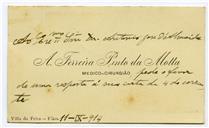 Ao Ex.mo Snr. Dr. Antonio José d'Almeida
A. Ferreira Pinto da Motta
MEDICO-CIRURGIÃO
pede o favor
de uma resposta á sua carta de 4 do corren
te
Villa da Feira - Fiães, 11-IX-914